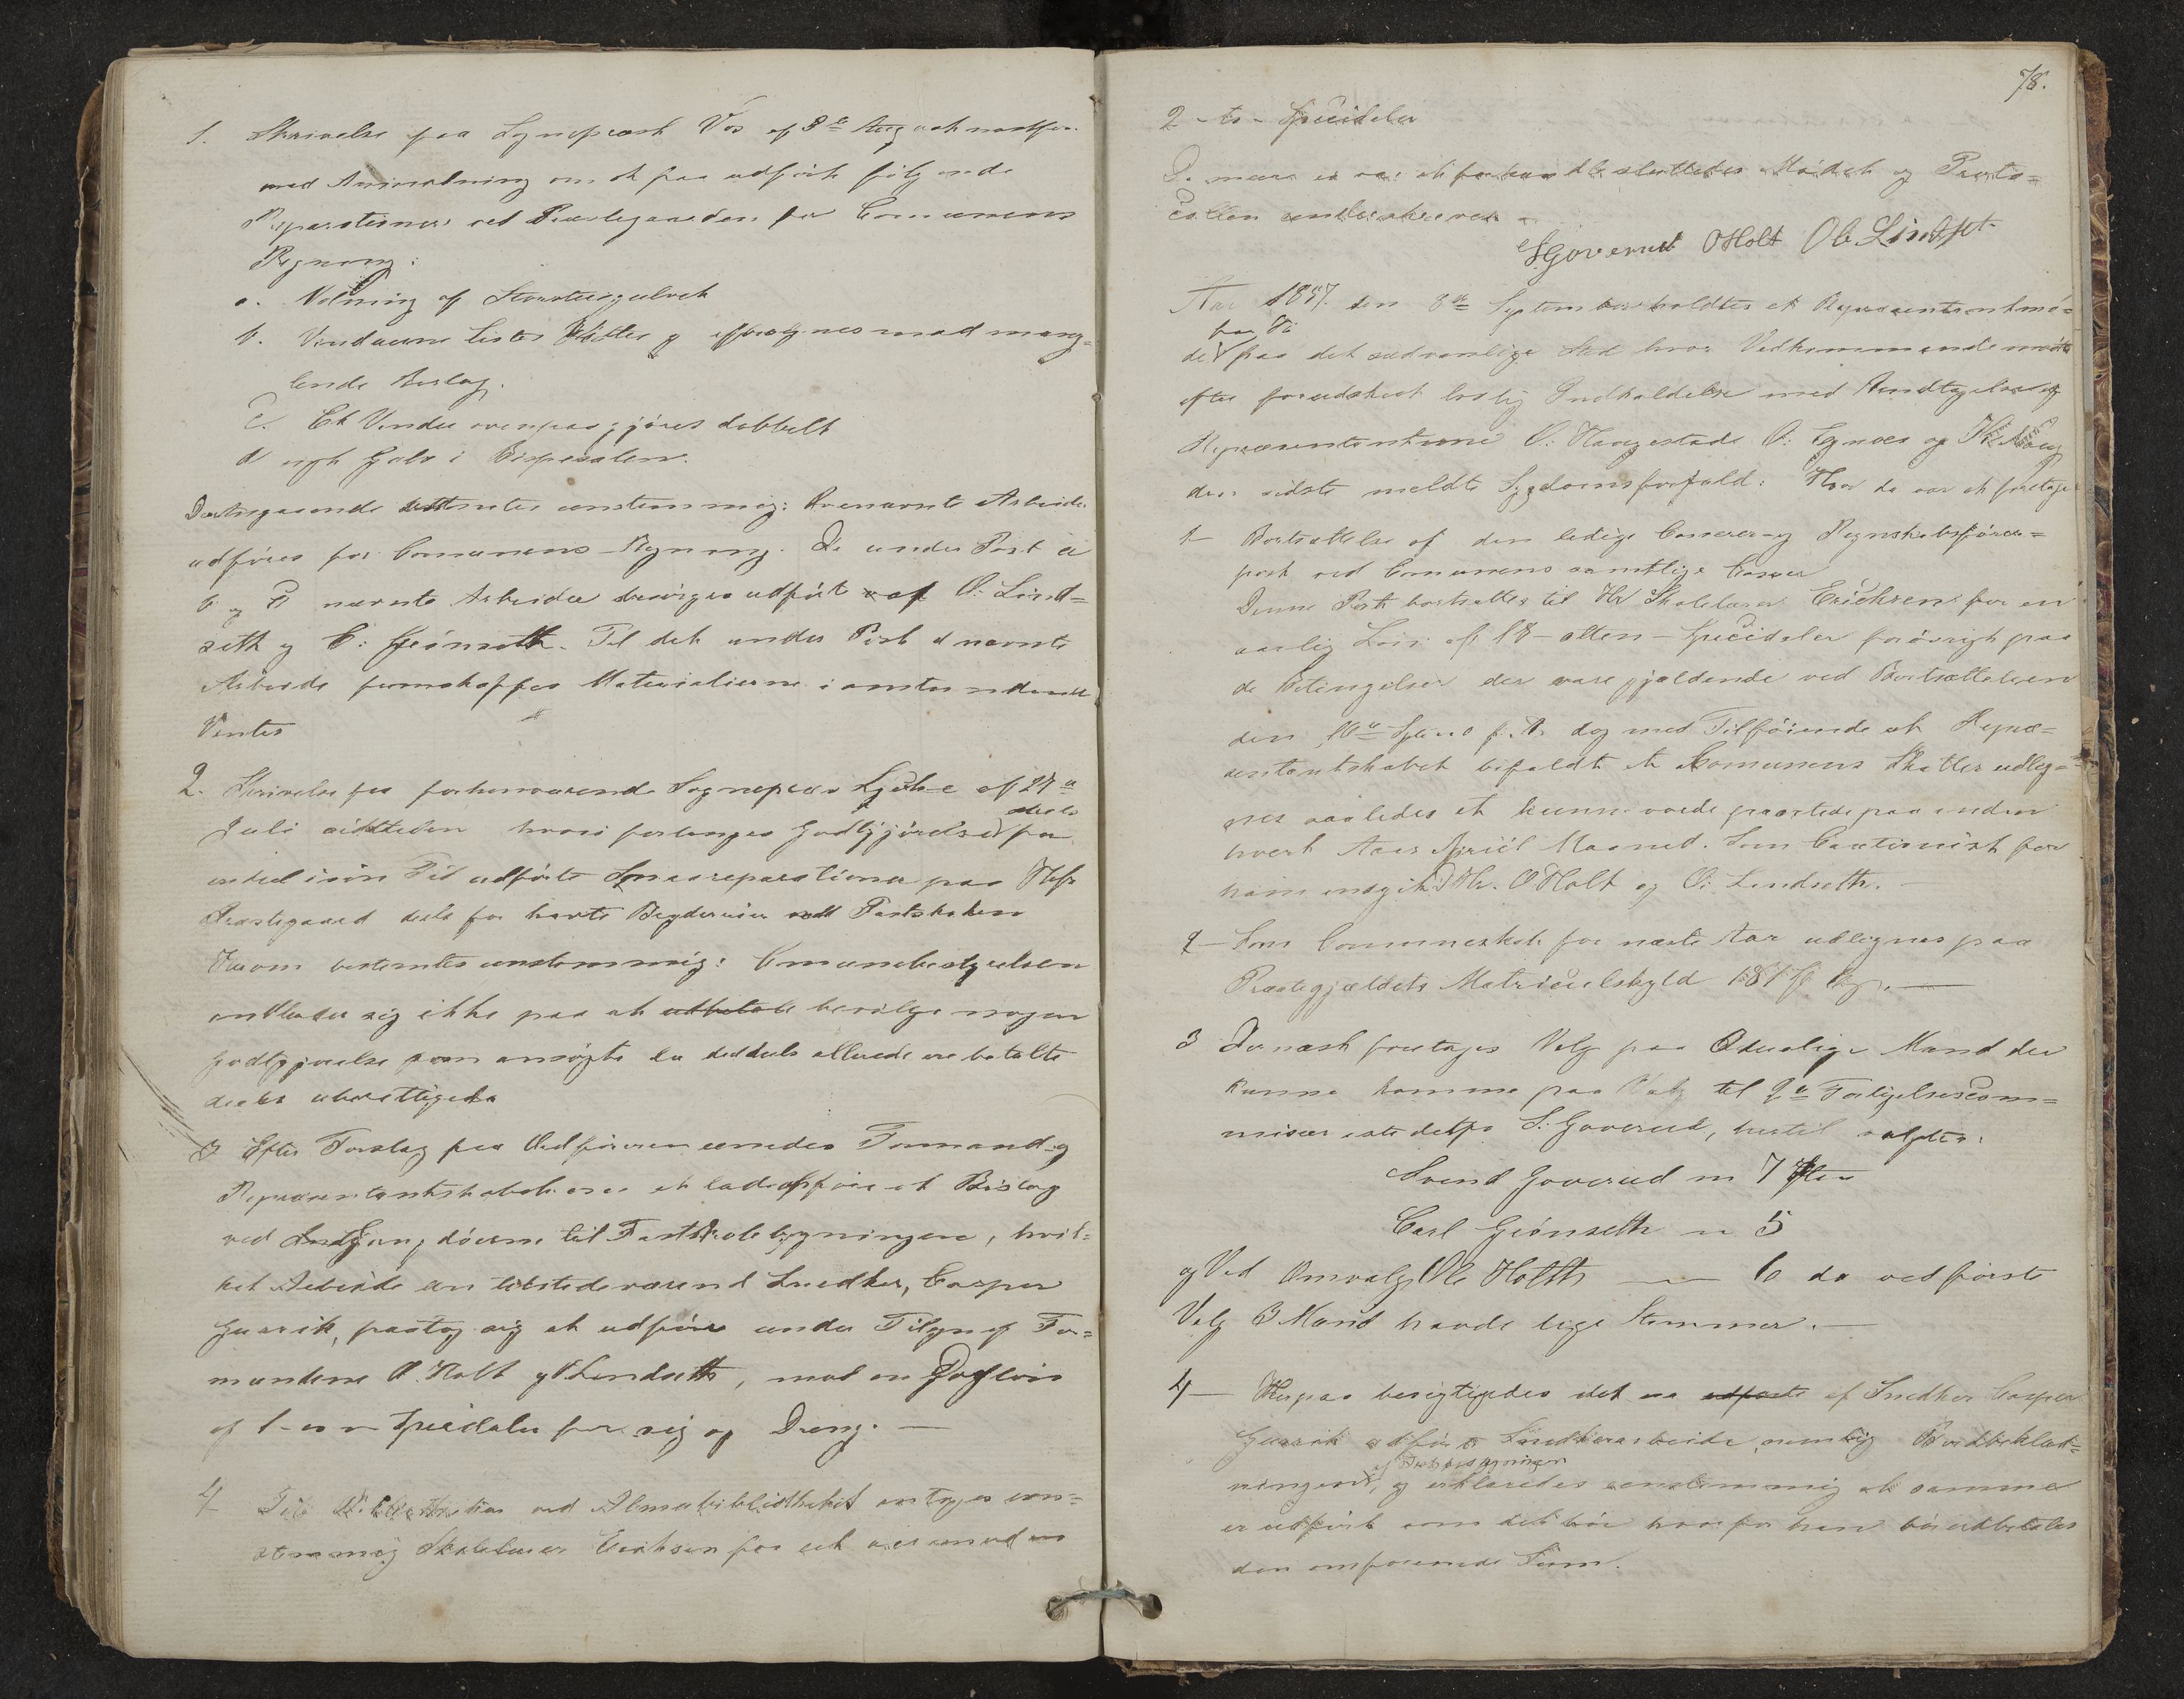 1. Skrivelse fra Sognepræst Vos af 3de Aug
med Anmodning om at faa udført følgende
Reparationer ved Præstegaarden for Comunens
Regning:
a. Maling af Storstuegulvet
b. Vinduerne listes kittes og efterses med mang=
lende Beslag.
c. Et Vindu ovenpaa gjøres dobbelt
d nyt Golv i Bispesalen.
Dertilgaaende bestemtes enstemmig: Ovennævnte Arbeide
udføres for Comunens Regning. De under Post a
b og c nævnte Arbeider besørges udført af O. Lind=
seth og C: Grønseth. Til det under Post d nævnte
Arbeide fremskaffes Materialierne
Vinter
2. Skrivelse fra forhenværende Sognepræst af 27de
Juli sidstleden hvori forlanges Godtgjørelse deels for
endeel i sin Tid udførte Smaareparationer paa
Præstegaard deels for ved Fastskolen
Herom bestemtes enstemmig: Comunebestyrelsen
indlader sig ikke paa at udbetale bevilge nogen
Godtgjørelse som ansøgt da de deels allerede ere betalte
deels uberettigede
3 Efter Forslag fra Ordføreren enedes Formand- og
Repræsentantskabet om at lade opføre et Bislag
ved Indgangsdøren til Fastskolebygningen, hvil=
ket Arbeide den tilstedeværend Snedker, Casper
paatog sig at udføre under Tilsyn af For=
mændene O. Holt og O Lindseth, mod en Dagløn
af 1 - en - Speciedaler for sig og Dreng. —
4 Til ved Almuebibliotheket antages een=
stemmig Skolelærer Erichsen for et Aar mod en
78.
2 - to - Speciedaler
Da mere ei var at forhandle sluttedes Mødet og Proto=
collen underskreven
S Goverud OHolt Ole Lindset
Aar 1857. den 8de September holdtes et Repræsentantmø=
de paa det sædvanlige Sted hvor Vedkommende mødte
efter forudskeet lovlig Indkaldelse med Undtagelse af
Repræsentanterne O: O: og
den sidste meldte Sygdomsforfald: Hvor da var at foretage
1— Bortsættelse af den ledige Casserer- og Regnskabsfører=
post ved Comunens samtlige Casser
Denne Post bortsattes til Hr Skolelærer Erichsen for en
aarlig Løn af 18 - atten - Speciedaler forøvrigt paa
de Betingelser der vare gjældende ved Bortsættelsen
den 10de f. A. dog med Tilføiende at Repræ=
sentantskabet befaldt at Comunens Skatter udlig=
nes saaledes at kunne vorde paa inden
hvert Aars April Maaned. Som Cautionist for
ham indgik Hr. O Holt og O: Lindseth. —
2— Som Comuneskat for næste Aar udlignes paa
Præstegjældets Matriculskyld
3 Dernæst foretages Valg paa Mænd der
kunne komme paa Valg til 2de Forligelsescom=
missær istedetfor S: Goverud, hertil valgtes:
Svend Goverud m 7 St
Carl Grønseth m 5
og Ved Omvalg Ole Holth — — 6 da ved første
Valg 3 Mænd havde lige Stemmer. —
4— Herpaa besigtigedes det af Snedker Casper
udførte Snedkerarbeide nemlig Bordbeklæd=
ningen, og erklæredes eenstemmig at samme
er udført som det bør hvorfor ham bør udbetales
den omforenede Sum.